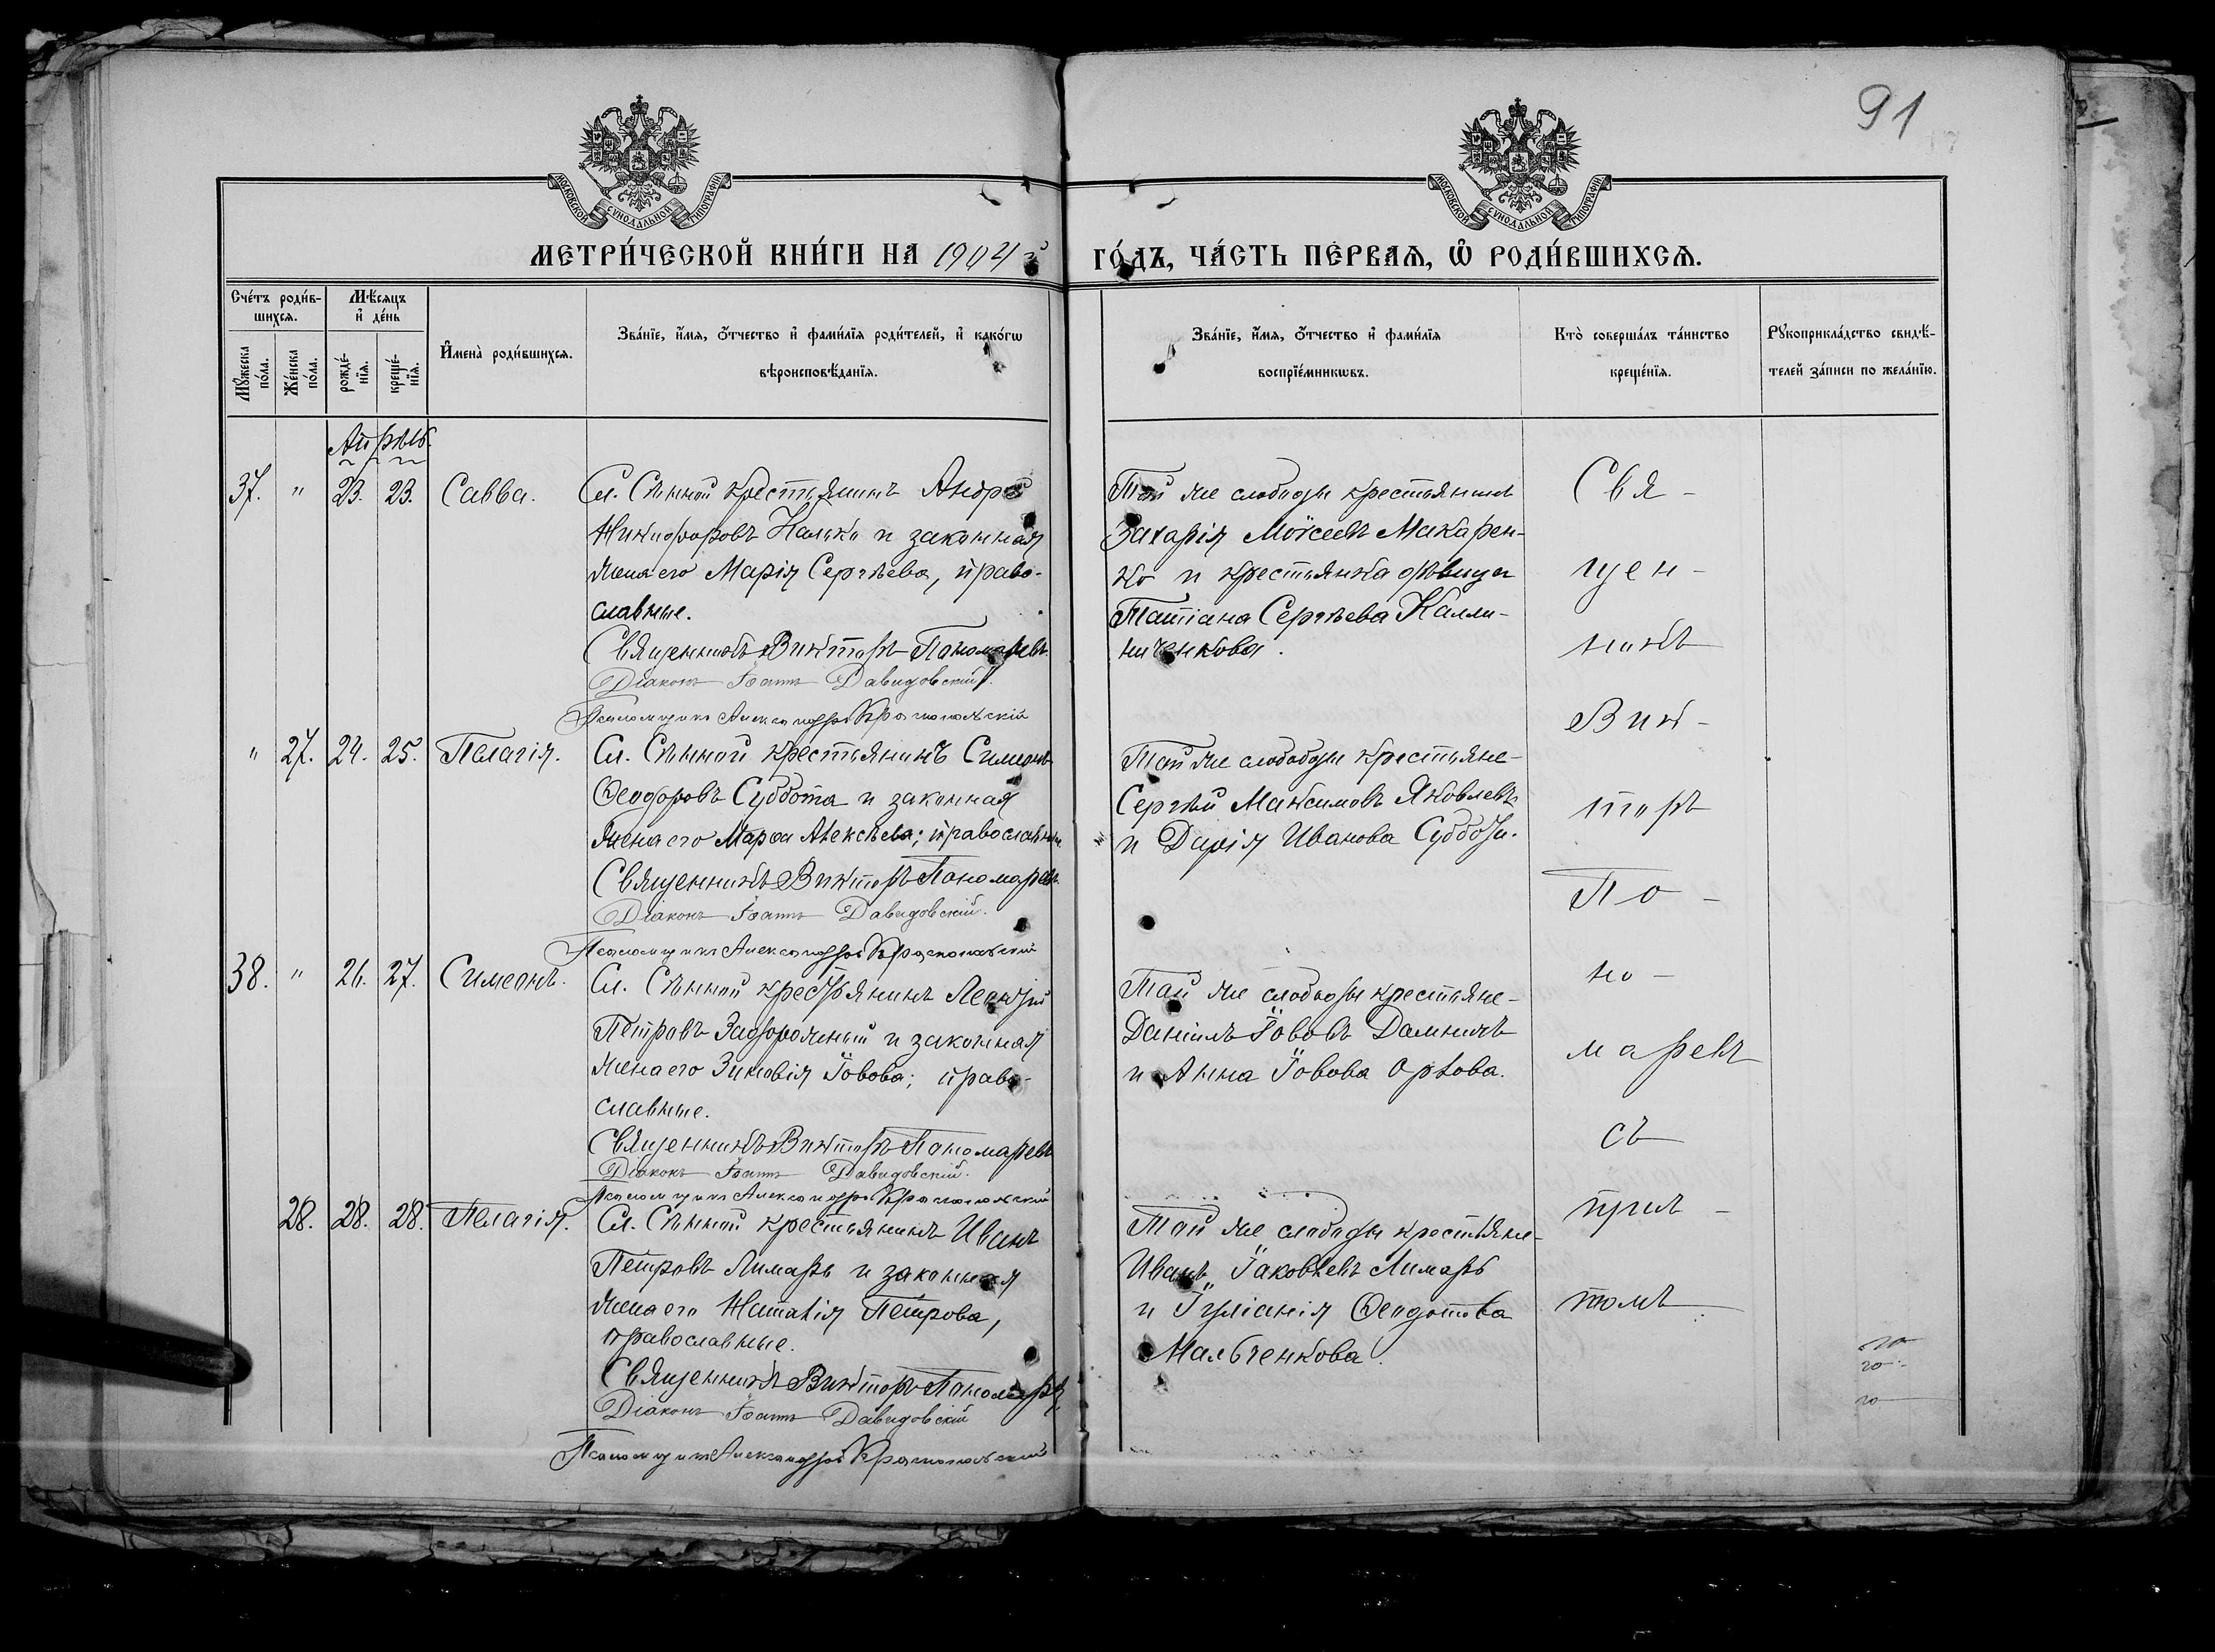 91
МОСКОВСКОЙ СУНОДАЛЬНОЙ ТИПОГРАФІИ
МОСКОВСКОЙ СУНОДАЛЬНОЙ ТИПОГРАФІИ
МЕТРИ́ЧЕСКОЙ КНИ́ГИ НА 1904 й ГО́ДЪ, ЧА́СТЬ ПЕ́РВАѦ, Ѡ҆ РОДИ́ВШИХСѦ.
Сче́тъ роди́в-
шихсѧ.
Мꙋ́жеска
по́ла.
Же́нска
по́ла.
Мѣ́сѧцъ
и҆ де́нь
рожде́-
нїѧ.
креще́-
нїѧ.
И҆мена̀ роди́вшихсѧ.
Зва́нїе, и҆́мѧ, о҆́тчество и҆ фами́лїѧ роди́телей, и҆ како́гѡ
вѣроисповѣ́данїѧ.
Зва́нїе, и҆́мѧ, о҆́тчество и҆ фами́лїѧ
воспрїе́мникѡвъ.
Кто̀ соверша́лъ та́инство
креще́нїѧ.
Рꙋкоприкла́дство свидѣ́-
телей за́писи по жела́нїю.
Апрѣль.
37. " 23. 23. Савва.
Сл. Сѣнной крестьянинъ Андрей
Никифоровъ и законная
жена его Марія Сергѣева, право-
славные.
Священникъ Викторъ Пономаревъ
Діаконъ Іоаннъ Давидовскій.
Псаломщикъ Александръ Краснопольскій
Той же слободы крестьянинъ
Захарія Моѵсеевъ Макарен-
ко и крестьянка дѣвица
Татіана Сергѣева Калли-
ниченкова.
" 27. 24. 25. Пелагія.
Сл. Сѣнной крестьянинъ Симеонъ
Ѳеодоровъ Суббота и законная
жена его Марѳа Алексѣева; православные.
Священникъ Викторъ Пономаревъ
Діаконъ Іоаннъ Давидовскій.
Псаломщикъ Александръ Краснопольскій
Той же слободы крестьяне-
Сергѣй Максимовъ Яковлевъ
и Дарія Иванова Суббота.
38. " 26. 27. Симеонъ.
Сл. Сѣнной крестьянинъ Леонтій
Петровъ Задорожный и законная
жена его Зиновія Іовова; право-
славные.
Священникъ Викторъ Пономаревъ
Діаконъ Іоаннъ Давидовскій.
Псаломщикъ Александръ Краснопольскій
Той же слободы крестьяне-
Даніилъ Іововъ
и Анна Іовова Орлова.
28. 28. 28. Пелагія.
Сл. Сѣнной крестьянинъ Иванъ
Петровъ Лимарь и законная
жена его Наталія Петрова,
православные.
Священникъ Викторъ Пономаревъ
Діаконъ Іоаннъ Давидовскій
Псаломщикъ Александръ Краснопольскій
Той же слободы крестьяне-
Иванъ Іаковлевъ Лимарь
и Іуліанія Ѳеодотова
Мальченкова.
Свя-
щен-
никъ
Вик-
торъ
По-
но-
маревъ
съ
прич-
томъ.